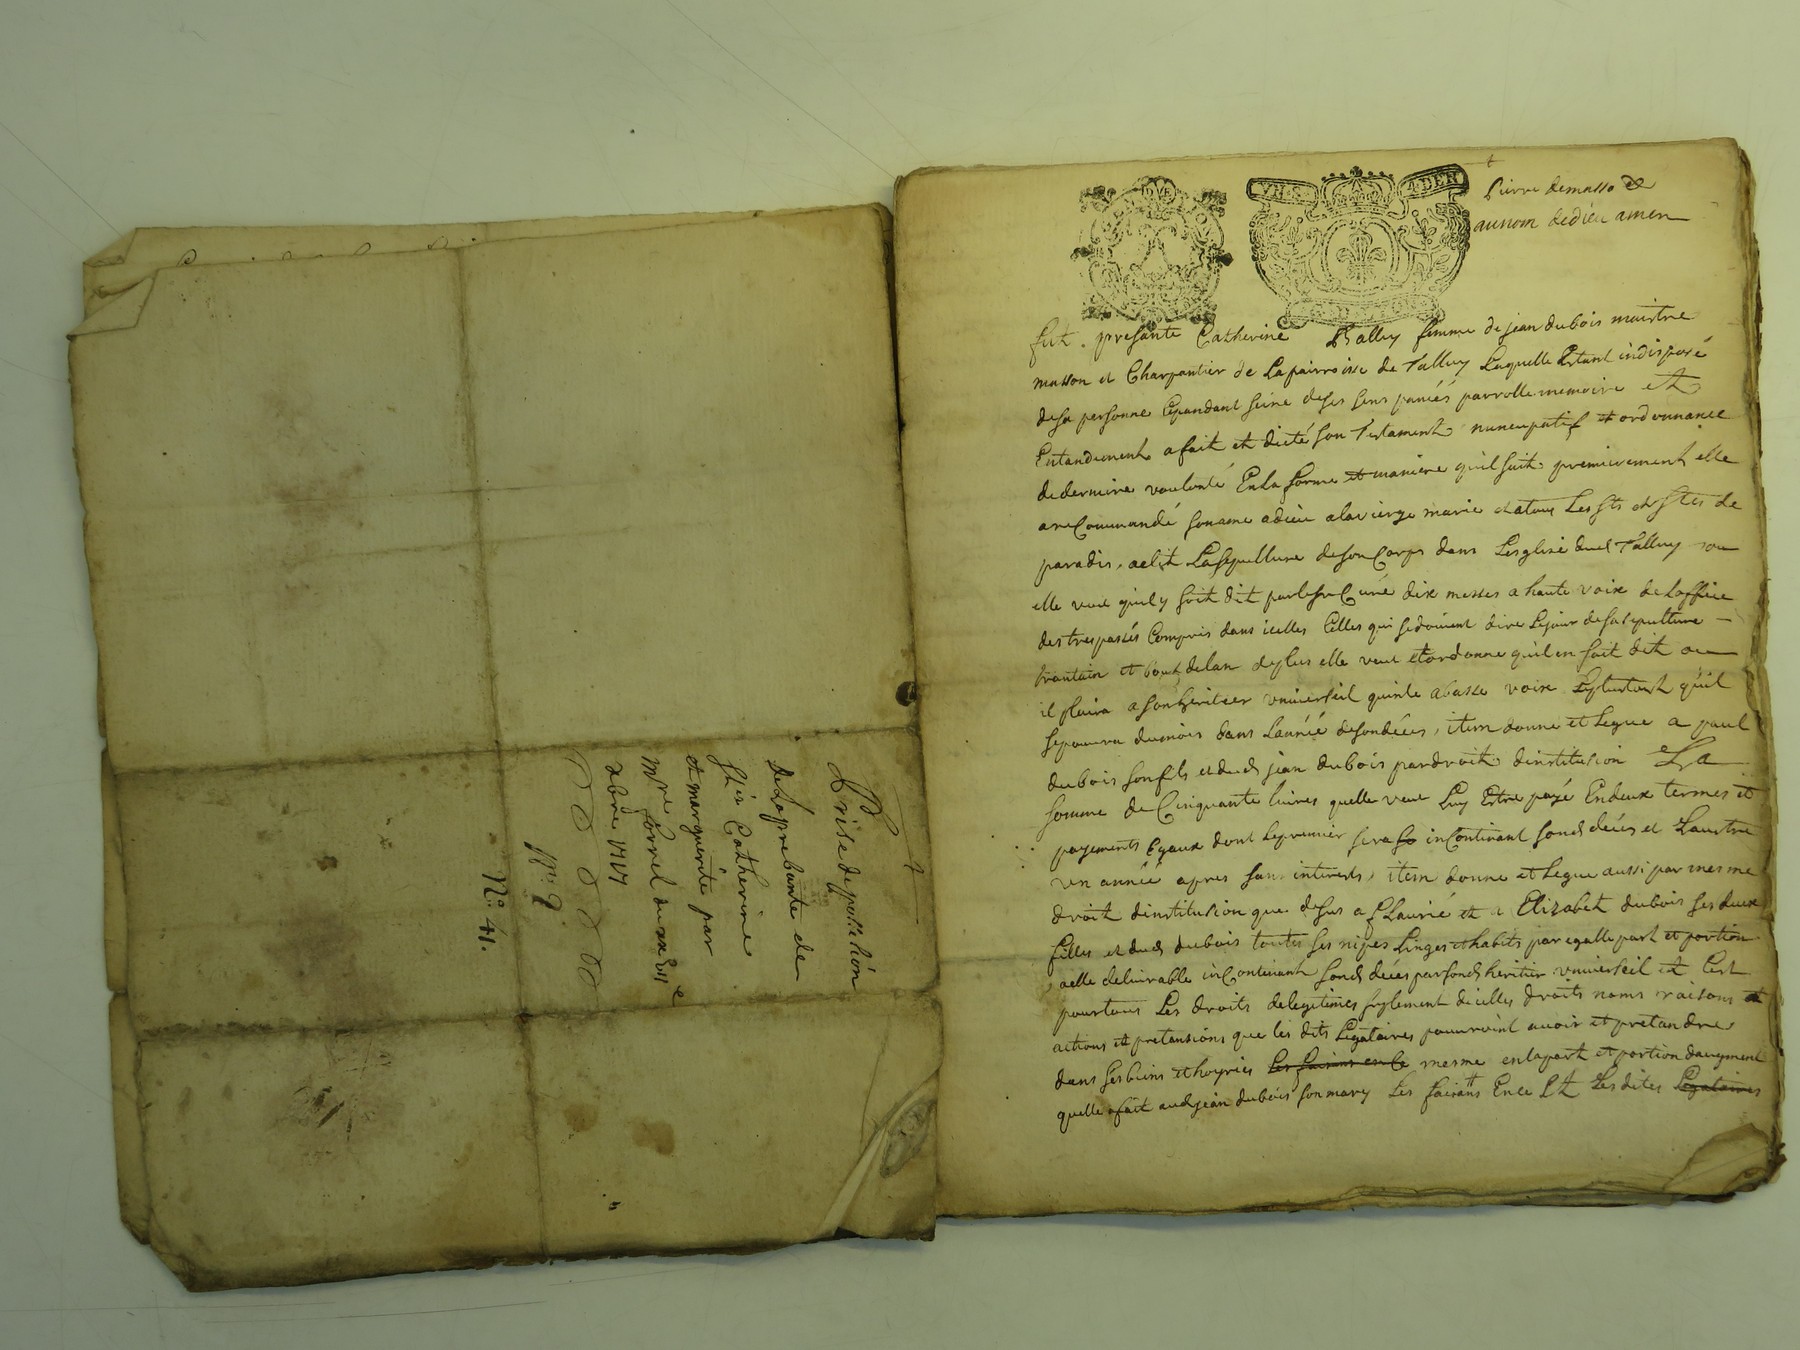 Prise de possession
de la prebande de
Ste Catherine
et marguerite par
Mre
N.o 9.
N.o 41.
DVE
Pierre demasso
au nom de dieu amen
fut presante Catherine Balluy femme de jean dubois maistre
masson et Charpantier de La pairroisse de Talluy Laquelle Estant indisposé
de sa personne Cepandant seine de ses sens pansés parrolle memoire et
Entandement a fait et dicté son Testament nuncupatif et ordonnance
de derniere voulonté En la forme et maniere qu'il suit premierement elle
a reCommandé son ame a dieu a la vierge marie et a tous Les sts et stes de
paradis, a elit La sepulture de son Corps dans L'esglise dud Talluy ou
elle veut qu'il y soit dit par le sr Curé dix messes a haute voix de L'office
des trespassés Compris dans icelles Celles qui se doivent dire Le jour de sa sepulture
trantain et bout de l'an de plus elle veut et ordonne qu'il en soit dit ou
il plaira a son heritier universeil quinze a basse voix Le plustost qu'il
se pourra du mois dans L'année de son décés, item donne et Legue a paul
dubois son fils et dud jean dubois par droit d'institusion La
somme de Cinquante livres quelle veut Luy Estre payé En deux termes et
payements Egaux dont Le premier sera inContinant sond décés et L'austre
un année apres sans interests, item donne et Legue aussi par mesme
droit d'institusion que desus a Laurie et a Elizabet dubois ses deux
filles et dud dubois toutes ses nipes Linges et habits par egalle part et portion
a elle delivrable inContinant sond décés par sond heritier universeil et C'est
pour tous Les droits de legitimes suplement d'icelles droits noms raisons et
actions et pretansions que les dits Legataires pourroint avoir et pretandre
dans ses biens et hoyries Les faisant en ce mesme en la part et portion d'augment
quelle a fait aud jean dubois son mary Les faisant En ce Les dites Legataires